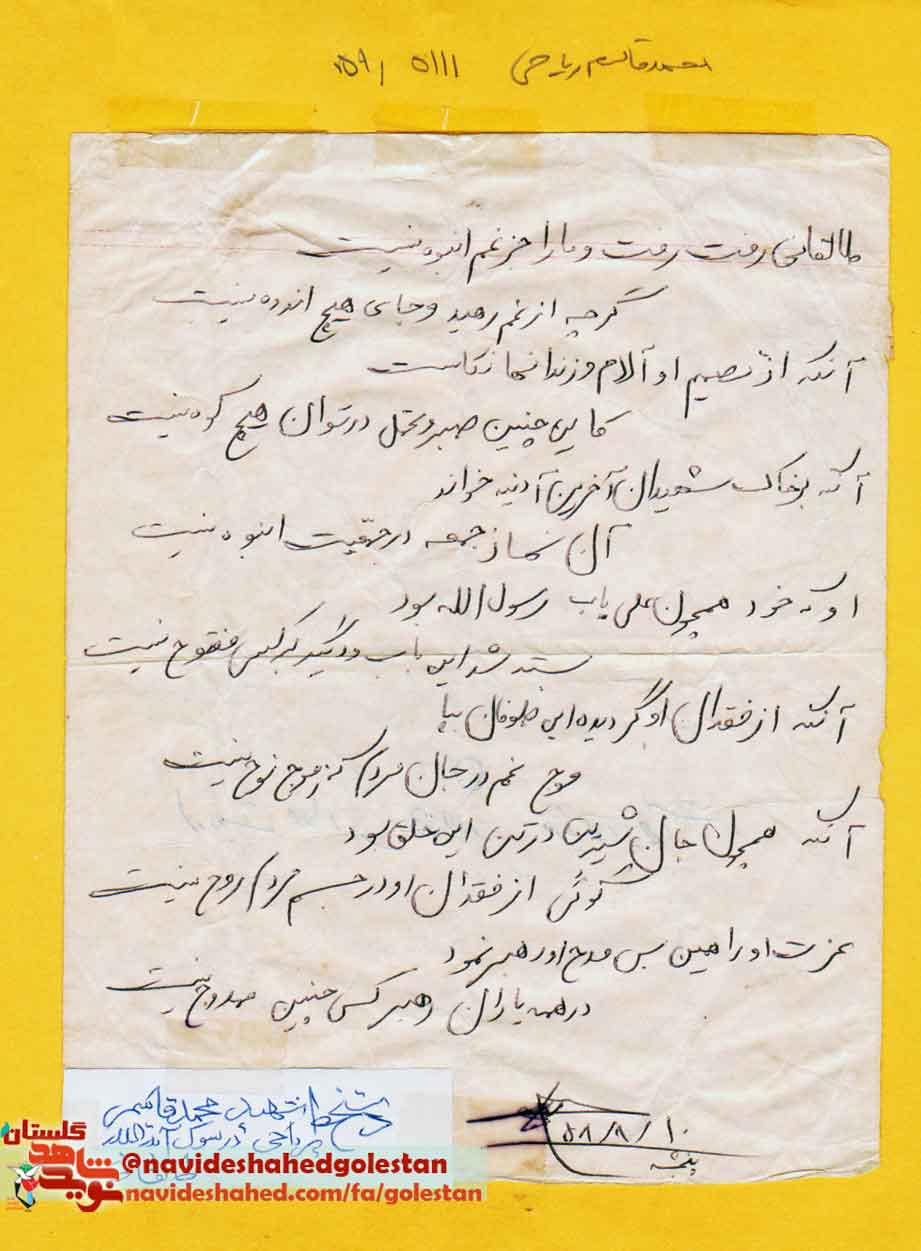 محمدقاسم ریاحی ۵۹/ ۵۱۱۱
طالقانی رفت رفت و ما را جز غم انبوه نیست
گرچه از غم رهید و جای هیچ اندوه نیست
آنکه از تصمیم او آلام و زندانها نکاست
کاین چنین صبر و تحمل در توان هیچ کوه نیست
آنکه بر خاک شهیدان آخرین آدینه خواند
آن نماز جمعه در حقیقت انبوه نیست
او که خود همچون علی باب رسول الله بود
بسته شد این باب و دیگر بر کسی مفتوح نیست
آنکه از فقدان او گردیده این طوفان بپا
موج غم در جان مردم کز موج نوح نیست
آنکه همچون جان شیرین در تن این خلق بود
گوئی از فقدان او در جسم مردم روح نیست
عزت او را همین بس مدح او رهبر نمود
در همه یاران رهبر کس چنین ممدوح نیست
۵۸/۸/۱۰
دستخط شهید محمد قاسم
ریاحی در سوگ آیت الله
گلستان
نوید شاهد
@navideshahedgolestan
navideshahed.com/fa/golestan